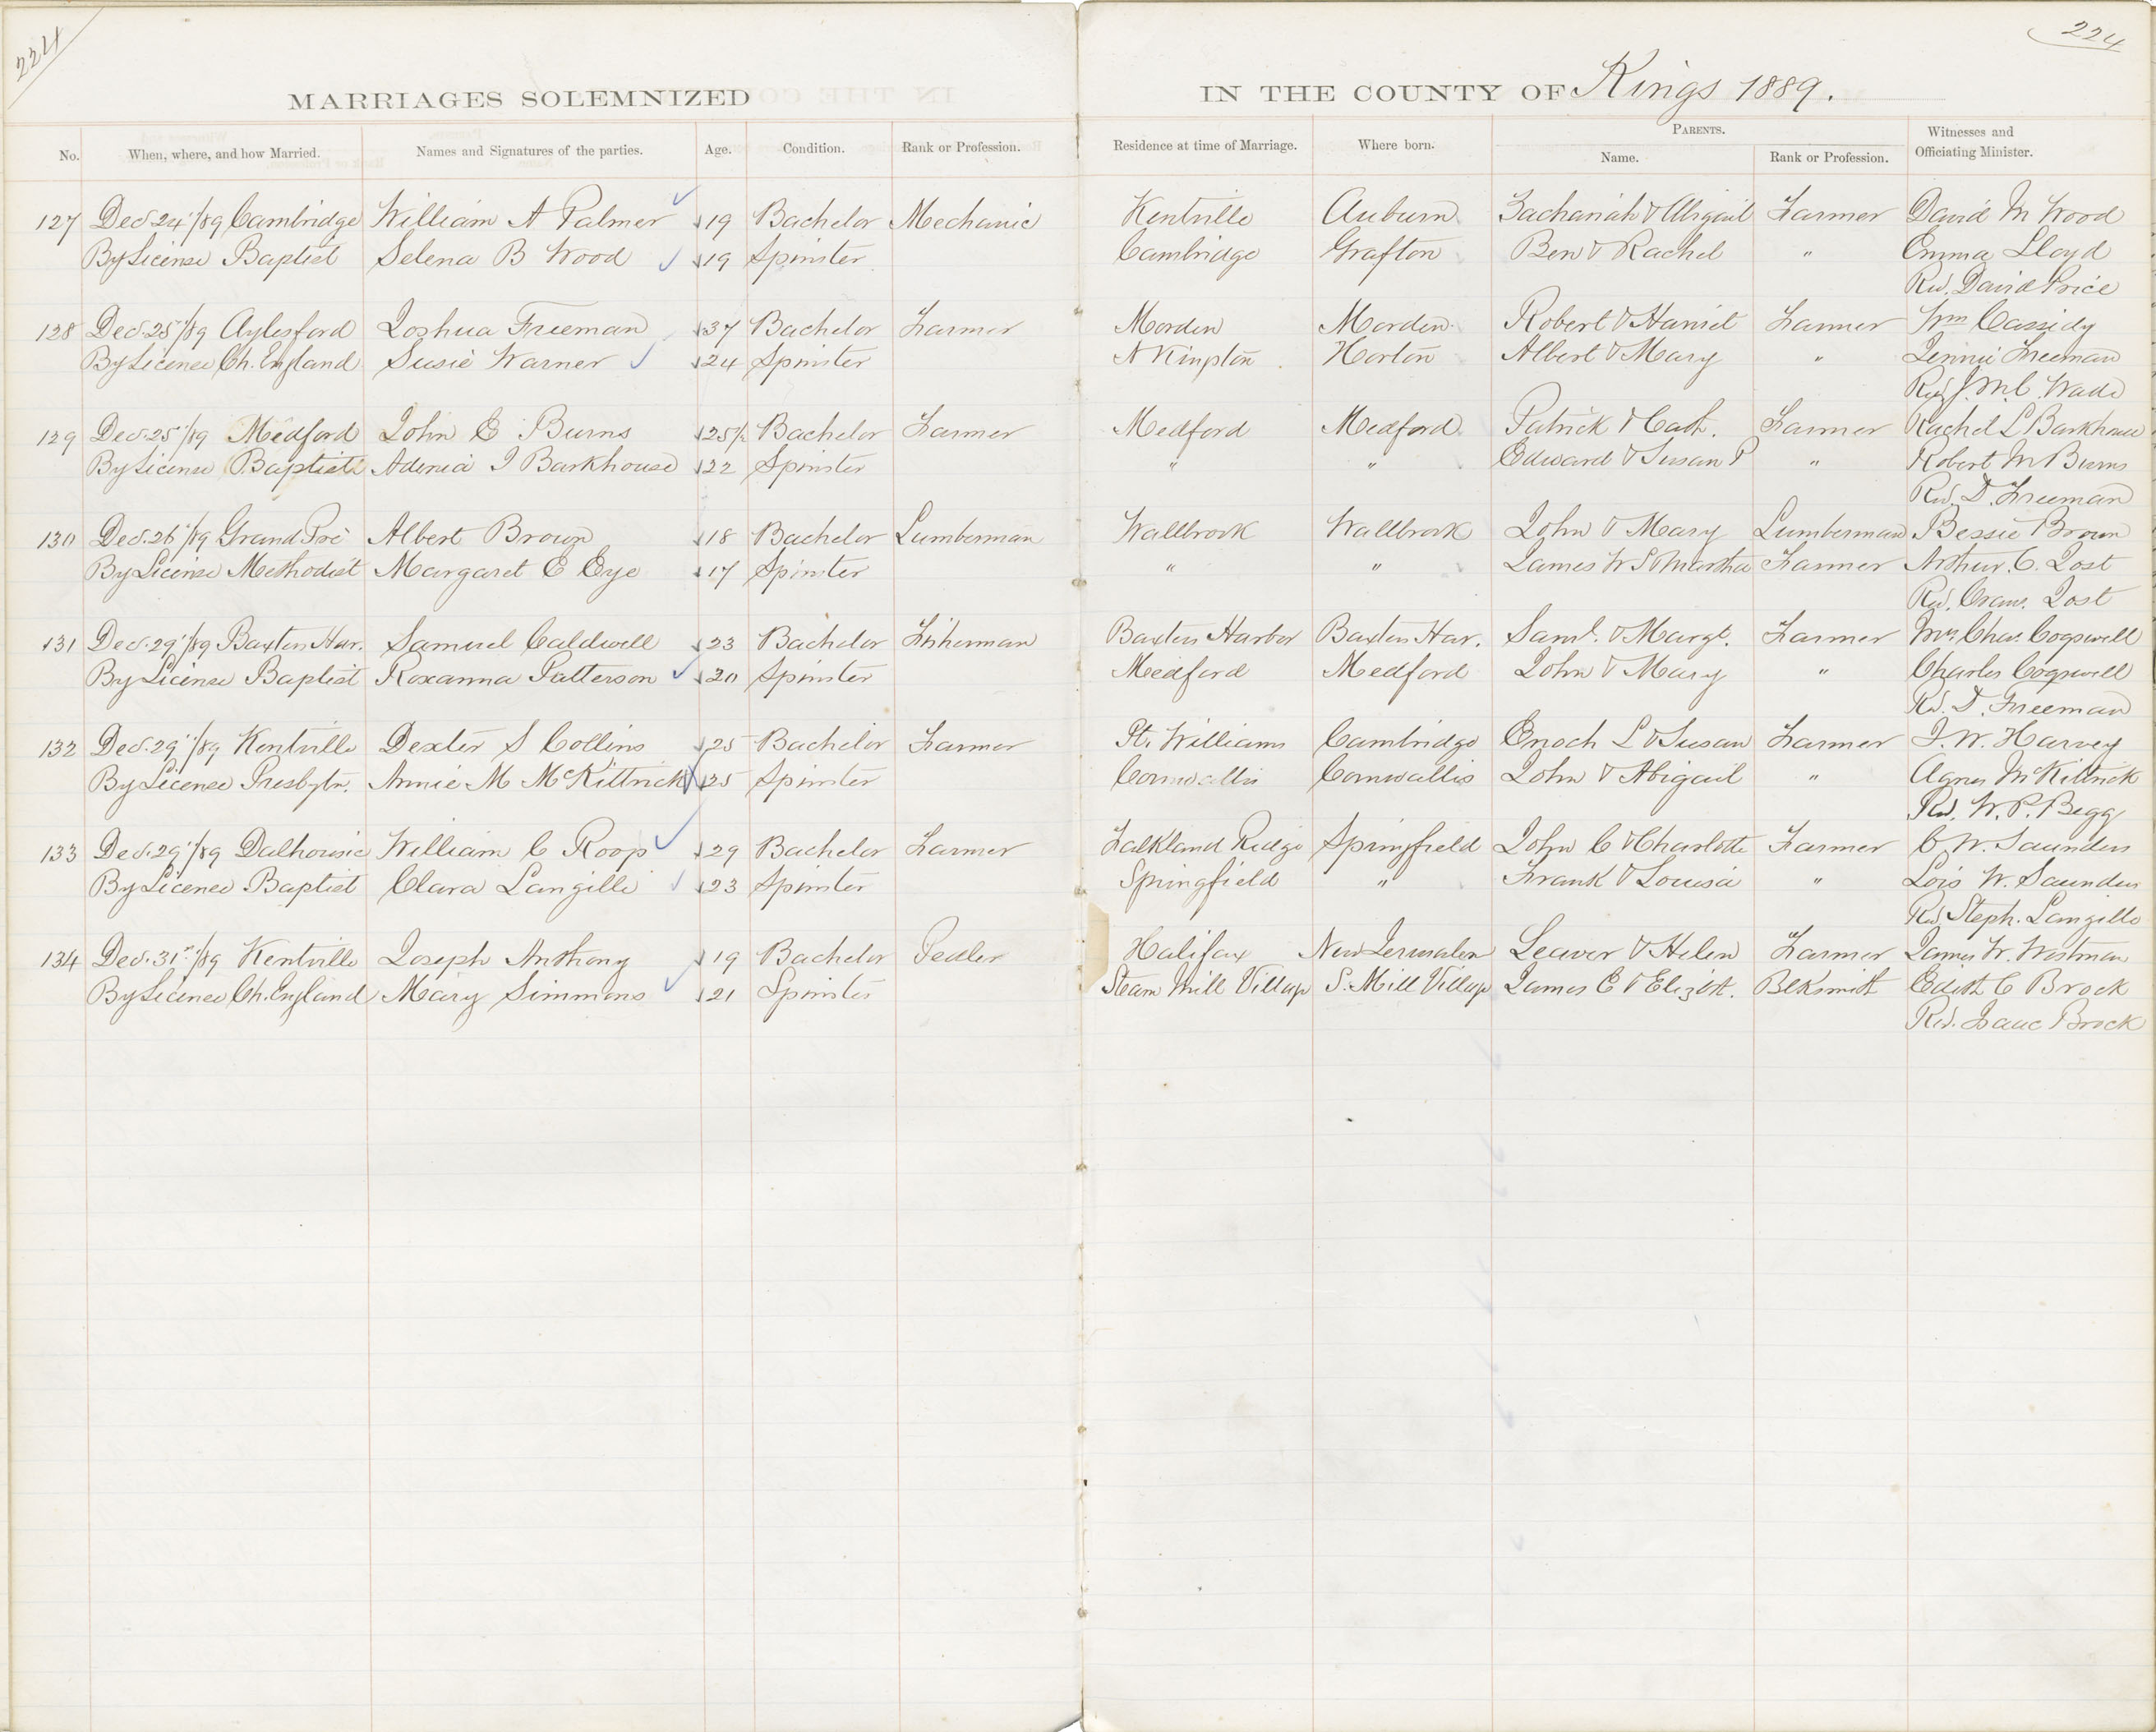 224
224
MARRIAGES SOLEMNIZED IN THE COUNTY OF Kings 1889.
No. When, where, and how Married. Names and Signatures of the parties. Age. Condition. Rank or Profession. Residence at time of Marriage. Where born. PARENTS. Name. Rank or Profession. Witnesses and Officiating Minister.
127 Dec. 24"/89 Cambridge William A Palmer 19 Bachelor Mechanic Kentville Auburn Zachariah & Abigail Farmer David M Wood
By License Baptist Selena B Wood 19 Spinster Cambridge Grafton Ben & Rachel " Emma Lloyd
Rev. David Price
128 Dec. 25"/89 Aylesford Joshua Freeman 37 Bachelor Farmer Morden Morden Robert & Harriet Farmer Wm Cassidy
By License Ch. England Susie Warner 24 Spinster N Kingston Horton Albert & Mary " Jennie Freeman
Rev. J. M. C. Wade
129 Dec. 25"/89 Medford John E Burns 25½ Bachelor Farmer Medford Medford Patrick & Cath. Farmer Rachel L Barkhouse
By License Baptist Adenia J Barkhouse 22 Spinster " " Edward & Susan P " Robert M Burns
Rev. D. Freeman
130 Dec. 26"/89 Grand Pré Albert Brown 18 Bachelor Lumberman Wallbrook Wallbrook John & Mary Lumberman Bessie Brown
By License Methodist Margaret E Eye 17 Spinster " " James W S & Martha Farmer Arthur C. Jost
Rev. Cran. Jost
131 Dec. 29"/89 Baxters Har. Samuel Caldwell 23 Bachelor Fisherman Baxters Harbor Baxters Har. Saml. & Margt. Farmer Mrs. Chas. Cogswell
By License Baptist Roxanna Patterson 20 Spinster Medford Medford John & Mary " Charles Cogswell
Rev. D. Freeman
132 Dec. 29"/89 Kentville Dexter S Collins 25 Bachelor Farmer Pt. Williams Cambridge Enoch L & Susan Farmer J. W. Harvey
By License Presbytn. Annie M McKittrick 25 Spinster Cornwallis Cornwallis John & Abigail " Agnes McKittrick
Rev. W. P. Begg
133 Dec. 29"/89 Dalhousie William C Roop 29 Bachelor Farmer Falkland Ridge Springfield John C & Charlotte Farmer C. W. Saunders
By License Baptist Clara Langille 23 Spinster Springfield " Frank & Louisa " Lois W. Saunders
Rev. Steph. Langille
134 Dec. 31st/89 Kentville Joseph Anthony 19 Bachelor Pedler Halifax New Jerusalem Leaver & Helen Farmer James W. Westman
By License Ch. England Mary Simmons 21 Spinster Steam Mill Village S. Mill Village James E & Elizbt. Blksmith Edith C Brock
Rev. Isaac Brock